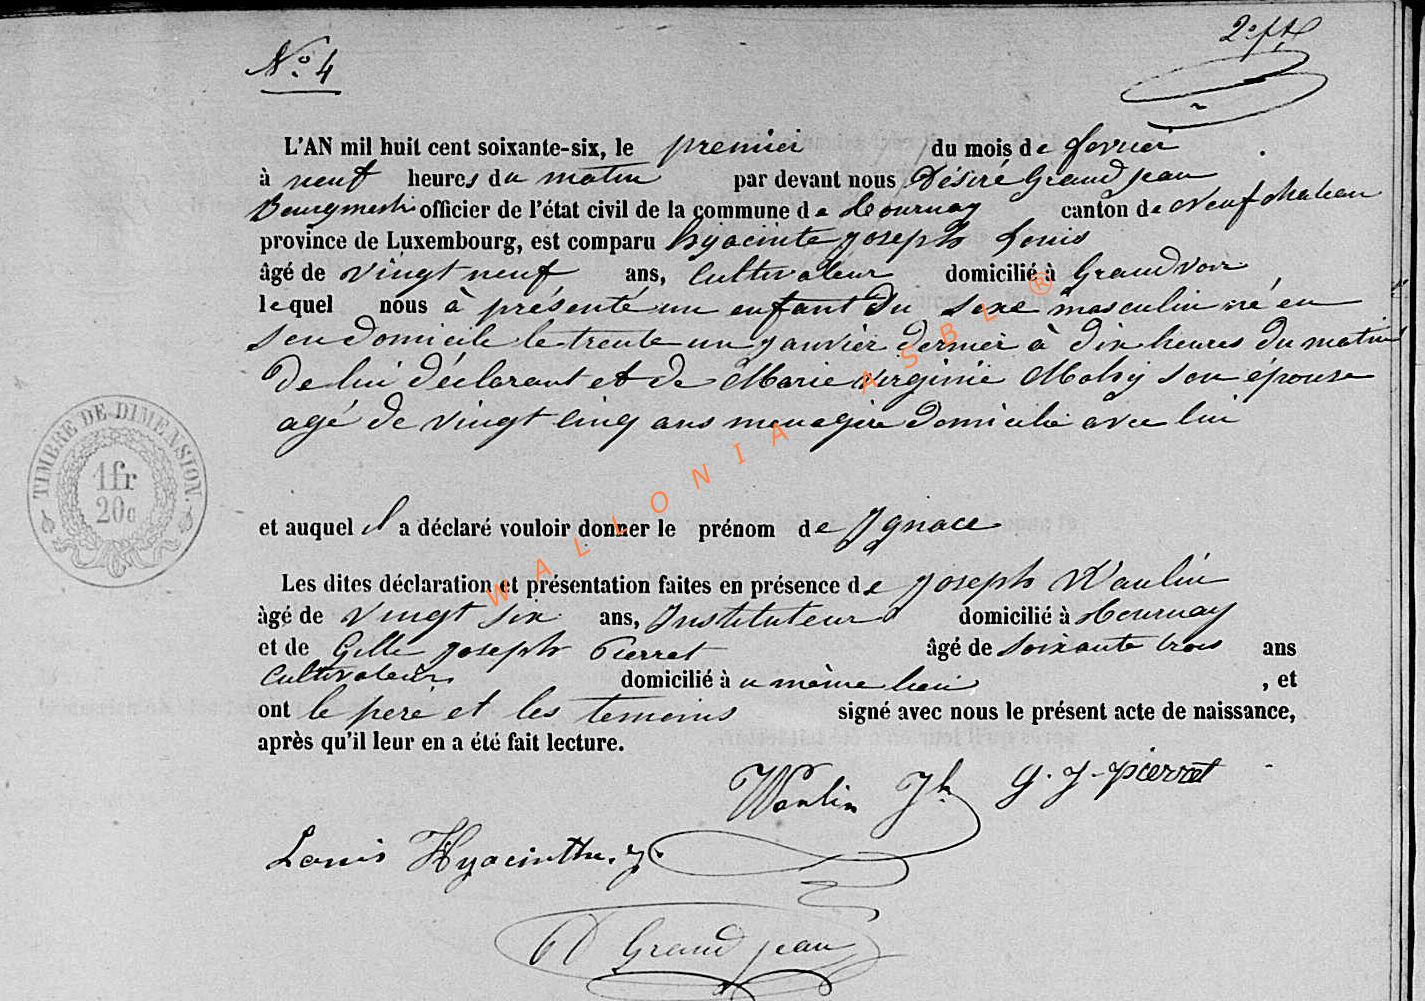 2e ft
N° 4
L'AN mil huit cent soixante-six, le premier du mois de fevrier
à neuf heures du matin par devant nous Désiré Grandjean
Bourgmestre officier de l'état civil de la commune de Tournay canton de Neufchateau
province de Luxembourg, est comparu hyacinte joseph Louis
âgé de vingt neuf ans, Cultivateur domicilié à Grandvoir
lequel nous à présenté un enfant du sexe masculin né en
son domicile le trente un janvier dernier à dix heures du matin
de lui déclarant et de Marie virginie son épouse
agé de vingt cinq ans menagère domicilié avec lui
et auquel il a déclaré vouloir donner le prénom de Ignace
Les dites déclaration et présentation faites en présence de joseph Waulin
âgé de vingt six ans, Instituteur domicilié à Tournay
et de Gille joseph Pierret âgé de soixante trois ans
Cultivateur domicilié à u même lieu , et
ont le père et les temoins signé avec nous le présent acte de naissance,
après qu'il leur en a été fait lecture.
Waulin Jh G. J. pierret
Louis Hyacinthe. j.
D Grandjean
TIMBRE DE DIMENSION.
1fr
20c
WALLONIA ASBL ®